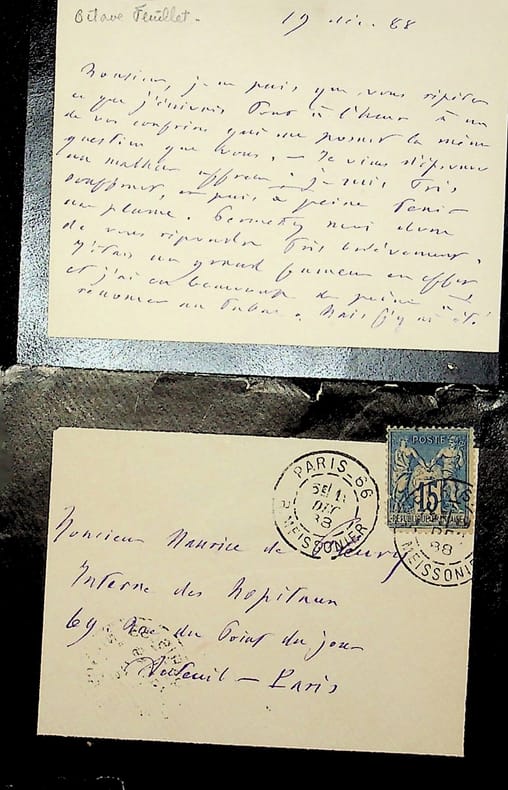 Octave Feuillet.
19 déc. 88
Monsieur, je ne puis que vous répéter
ce que j'écrivais tout à l'heure à un
de vos confrères qui me posait la même
question que vous. — Je viens d'éprouver
un malheur affreux. je suis très
souffrant, et puis à peine tenir
ma plume. Permettez moi donc
de vous répondre très brièvement.
J'étais un grand fumeur en effet
et j'ai eu beaucoup de peine à
renoncer au tabac. Mais j'y ai été
POSTE
15
RÉPUBLIQUE FRANÇAISE
PARIS 66
DEC
88
R. MEISSONIER
88
MEISSONIER
Monsieur Maurice de Fleury
Interne des Hopitaux
69 Rue du Point du jour
Auteuil — Paris